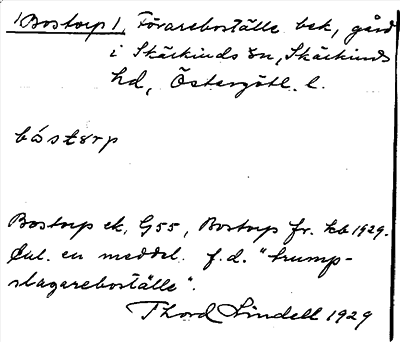 1 Bostorp 1, Förareboställe bek, gård
i Skärkinds sn, Skärkinds
hd, Östergötl. l.
båstorp
Bostorp ek, G55, Bostorp fr. kb 1929.
Enl. en meddel. f.d. "trump-
slagareboställe".
Thord Lindell 1929